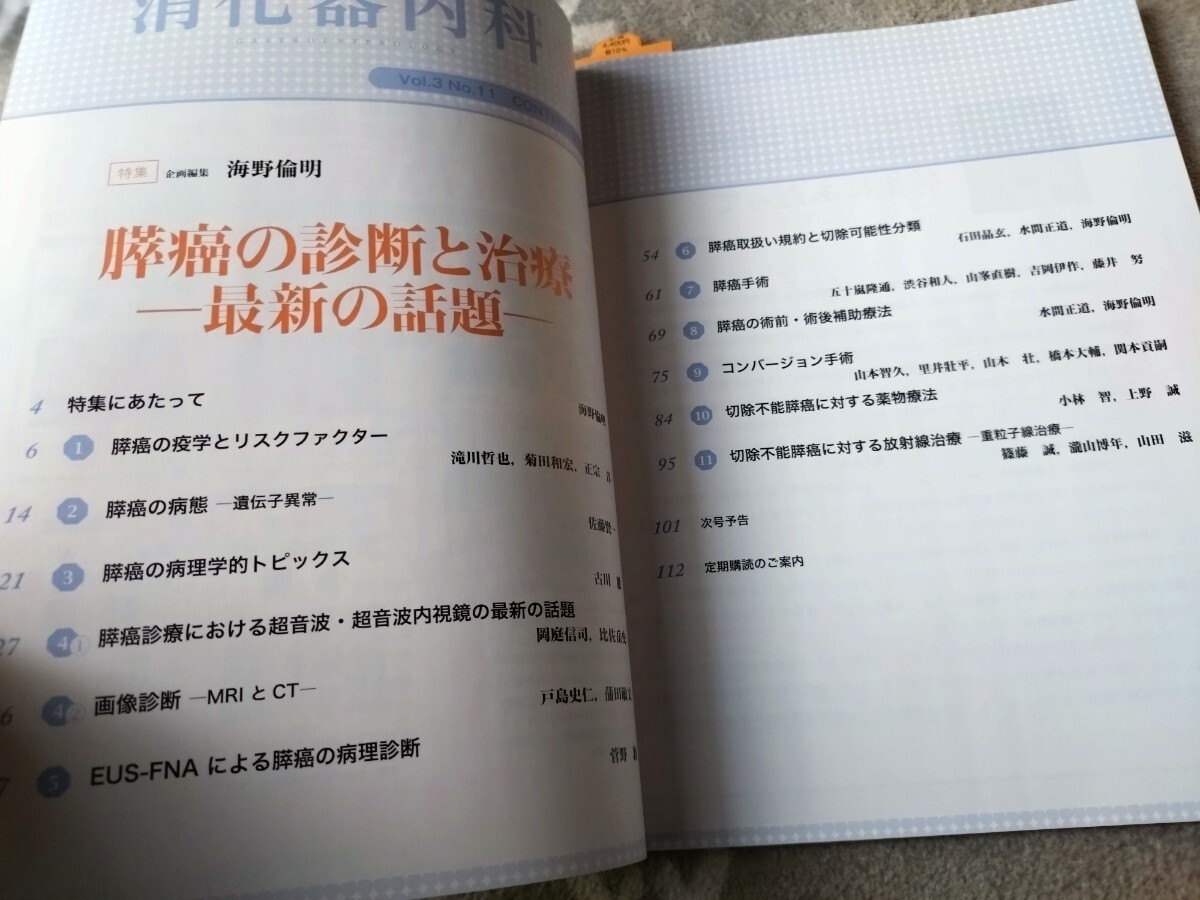 消化器内科
GASTROENTEROLOGY
Vol.3 No.11
特集 企画編集 海野倫明
膵癌の診断と治療
―最新の話題―
4 特集にあたって
海野倫明
6 1 膵癌の疫学とリスクファクター
滝川哲也，菊田和宏，正宗
14 2 膵癌の病態 ―遺伝子異常―
佐藤賢一
21 3 膵癌の病理学的トピックス
古川
27 4① 膵癌診療における超音波・超音波内視鏡の最新の話題
岡庭信司，比佐岳史
6 4② 画像診断 ―MRI と CT―
戸島史仁，蒲田敏文
7 5 EUS-FNA による膵癌の病理診断
菅野
4,400円
税10%
54 6 膵癌取扱い規約と切除可能性分類
石田晶玄，水間正道，海野倫明
61 7 膵癌手術
五十嵐隆通，渋谷和人，山峯直樹，吉岡伊作，藤井 努
69 8 膵癌の術前・術後補助療法
水間正道，海野倫明
75 9 コンバージョン手術
山本智久，里井壯平，山木 壮，橋本大輔，関本貢嗣
84 10 切除不能膵癌に対する薬物療法
小林 智，上野 誠
95 11 切除不能膵癌に対する放射線治療 ―重粒子線治療―
篠藤 誠，瀧山博年，山田 滋
101 次号予告
112 定期購読のご案内